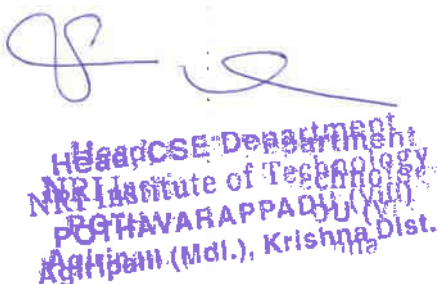 Head, CSE Department
NRI Institute of Technology
POTHAVARAPPADU (V)
Agiripalli (Mdl.), Krishna Dist.